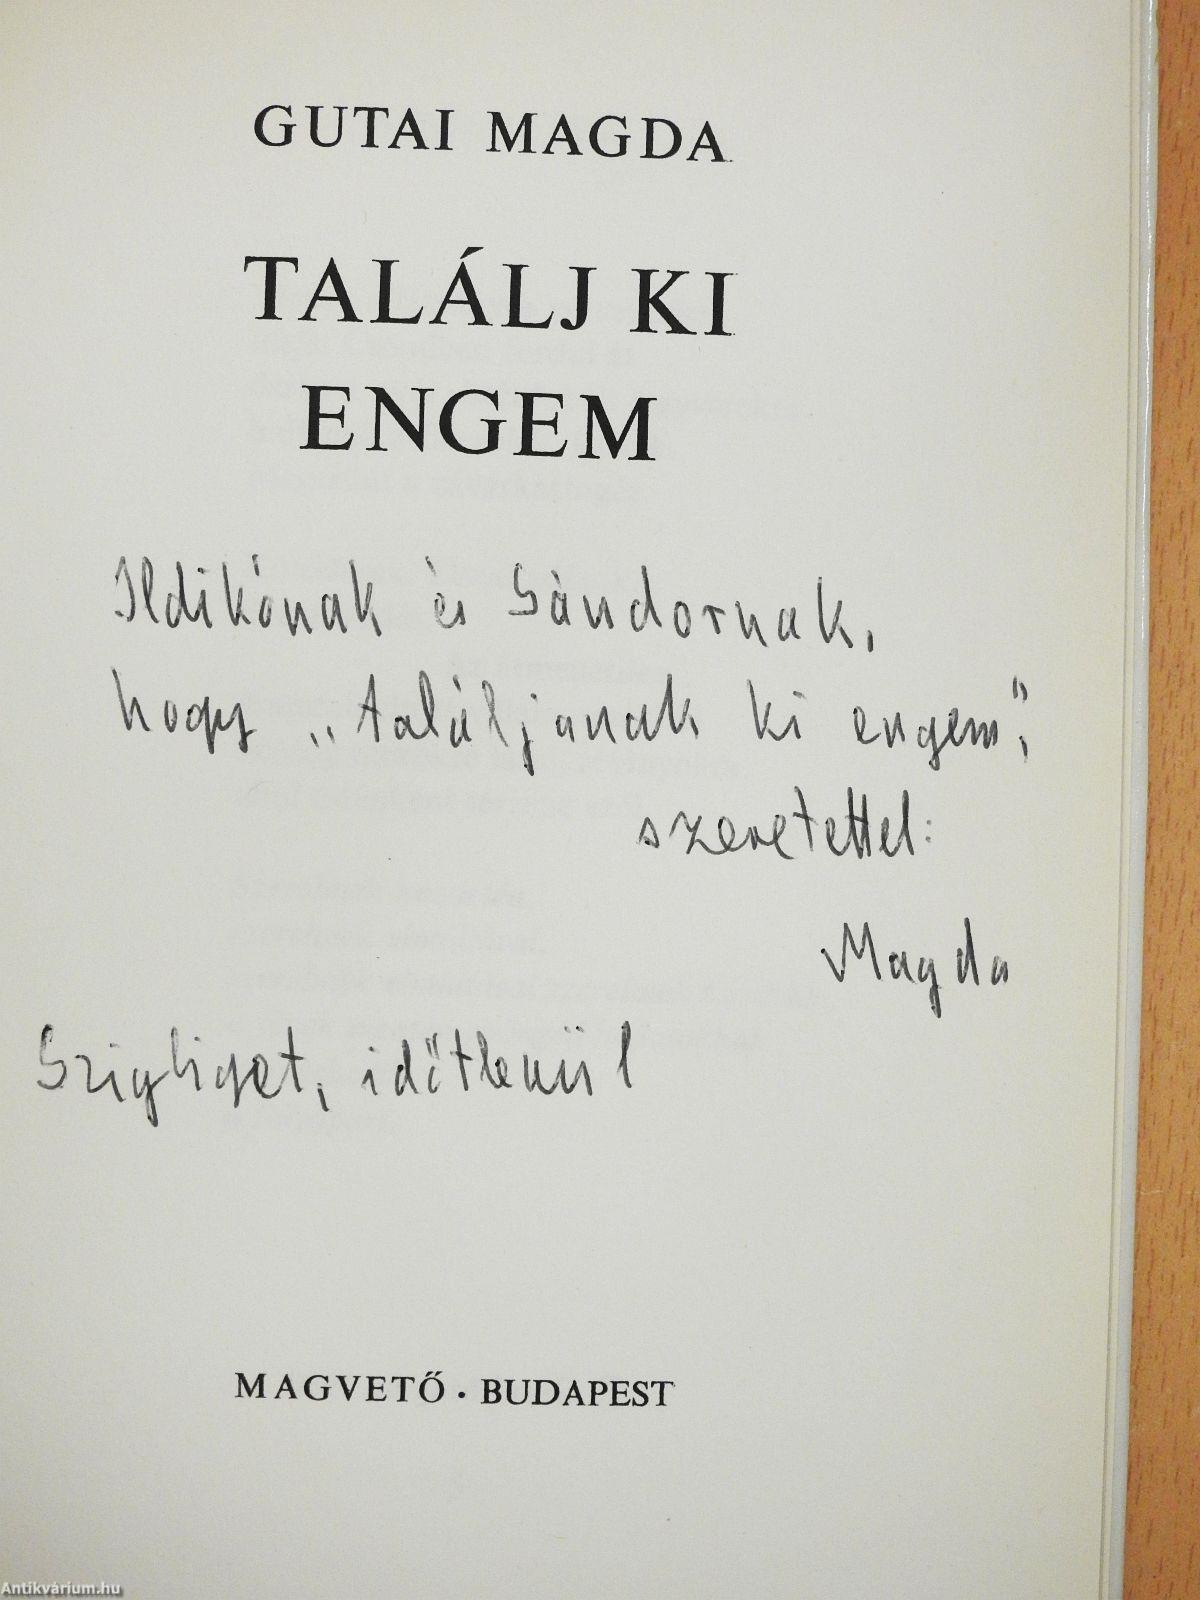 GUTAI MAGDA
TALÁLJ KI
ENGEM
Ildikónak és Sándornak,
hogy „találjanak ki engem",
szeretettel:
Magda
Szigliget, időtlenül
MAGVETŐ · BUDAPEST
Antikvárium.hu